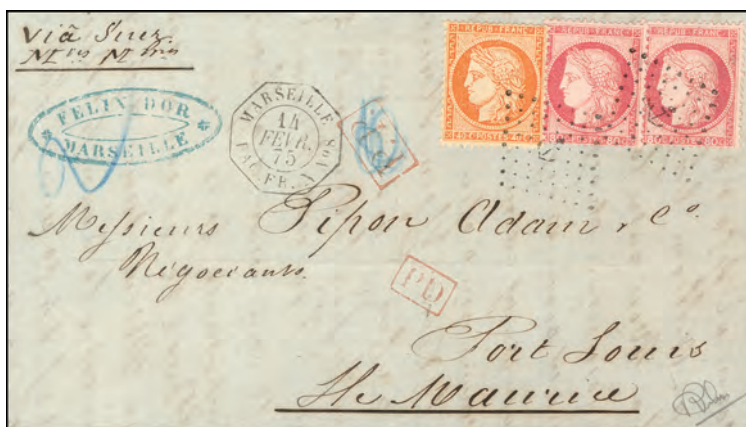 Viâ Suez
FELIX D'OR
MARSEILLE
MARSEILLE
14
FEVR.
75
PAQ. FR. N No8
REPUB. FRANC.
40 C. POSTES 40 C.
REPUB. FRANC.
80 C. POSTES 80 C.
REPUB. FRANC.
80 C. POSTES 80 C.
Messieurs Pipon Adam & Co.
Négociants
PD
Port Louis
Ile Maurice